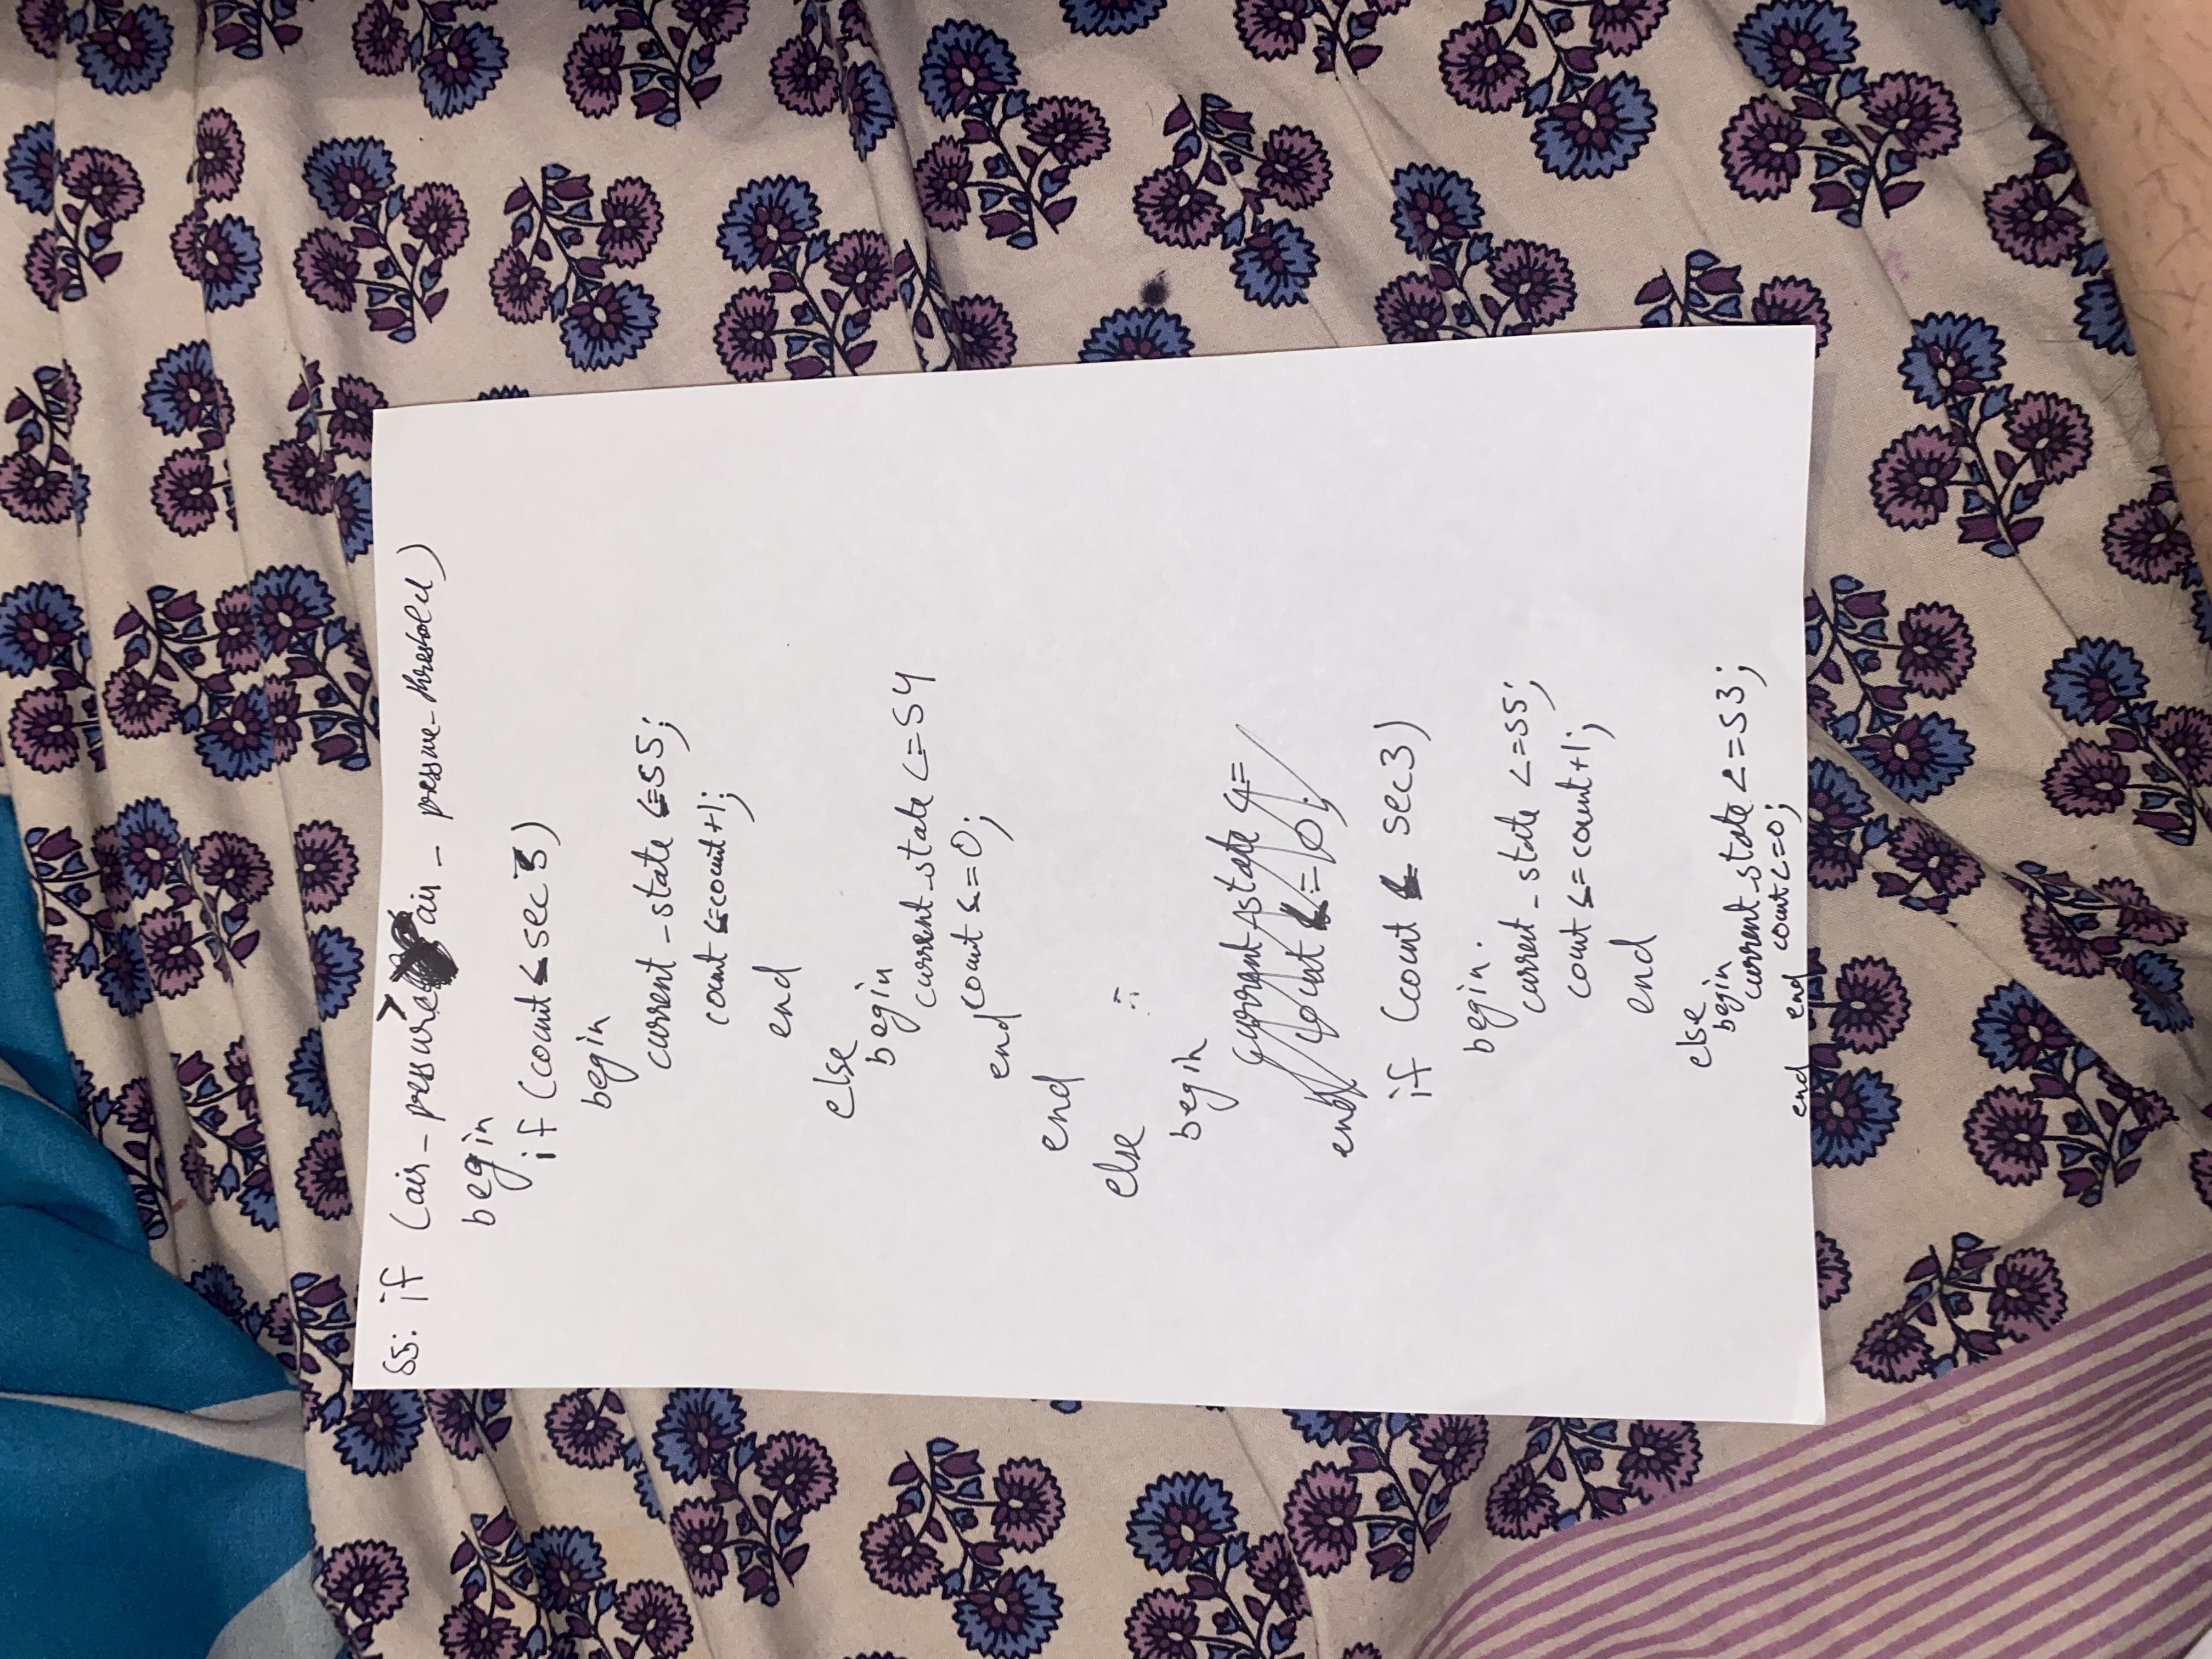 S5: if (air_pressure > air_pressure_threshold)
begin
if (count < sec3)
begin
current_state <= S5;
count <= count+1;
end
else
begin
current_state <= S4
count <= 0;
end
end
else
begin
current_state <=
count <= 0;
end
if (count < sec3)
begin.
current_state <= S5;
count <= count+1;
end
else
begin
current_state <= S3;
count <= 0;
end end